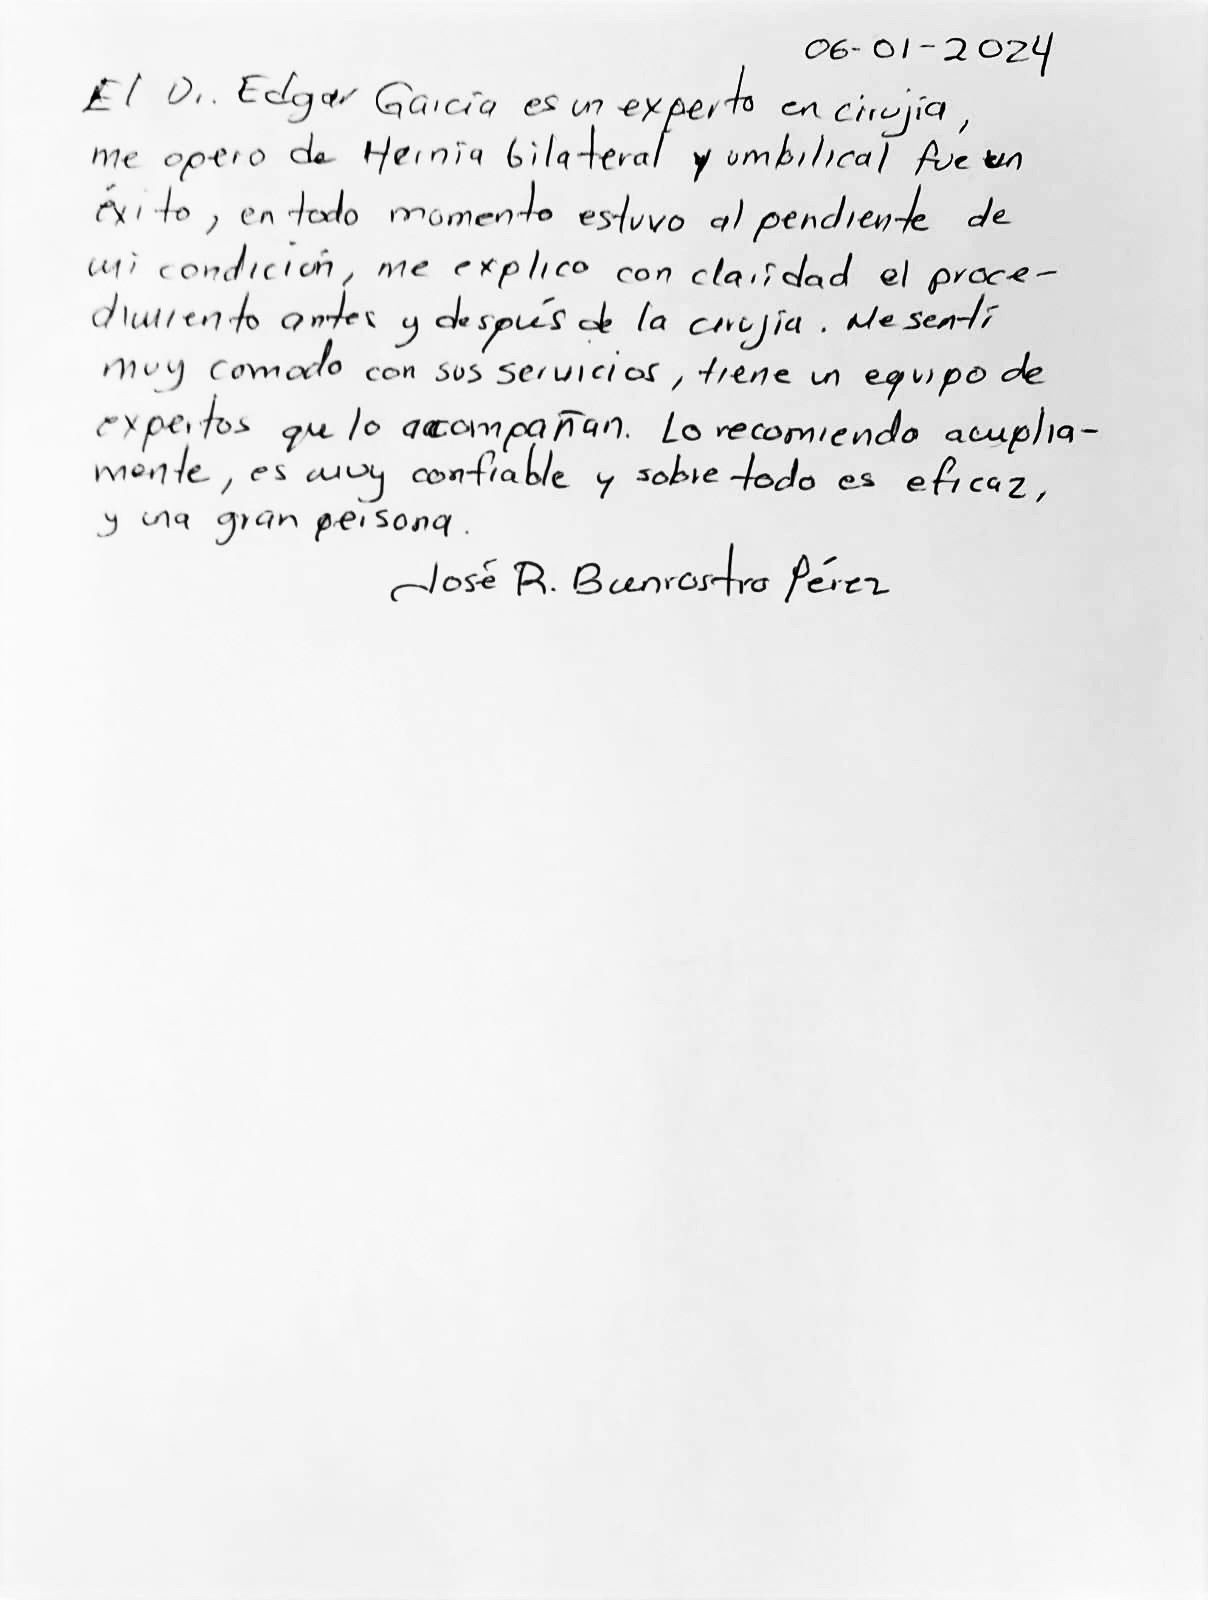 06-01-2024
El Dr. Edgar García es un experto en cirujía,
me opero de Hernia bilateral y umbilical fue un
éxito, en todo momento estuvo al pendiente de
mi condición, me explico con claridad el proce-
dimiento antes y después de la cirujía. Me sentí
muy comodo con sus servicios, tiene un equipo de
expertos que lo acompañan. Lo recomiendo amplia-
mente, es muy confiable y sobre todo es eficaz,
y una gran persona.
José R. Buenrostro Pérez